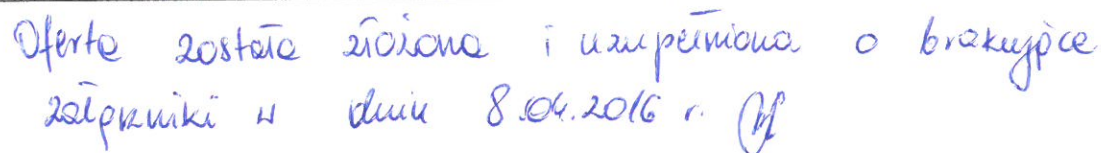 Oferta została złożona i uzupełniona o brakujące
załączniki w dniu 8.04.2016 r.